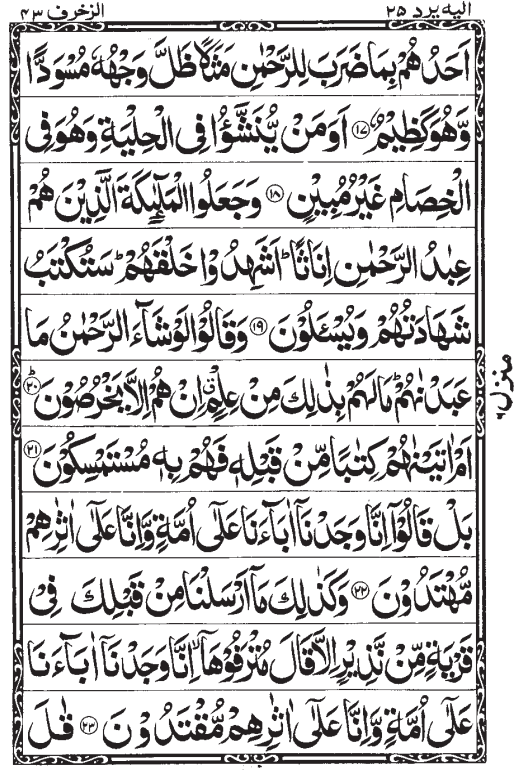 الیه یرد ۲۵
الزخرف ۴۳
اَحَدُهُمْ بِمَا ضَرَبَ لِلرَّحْمٰنِ مَثَلًا ظَلَّ وَجْهُهٗ مُسْوَدًّا
وَّهُوَ كَظِیْمٌ ﴿۱۷﴾ اَوَمَنْ یُّنَشَّؤُا فِی الْحِلْیَةِ وَهُوَ فِی
الْخِصَامِ غَیْرُ مُبِیْنٍ ﴿۱۸﴾ وَجَعَلُوا الْمَلٰٓىِٕكَةَ الَّذِیْنَ هُمْ
عِبٰدُ الرَّحْمٰنِ اِنَاثًا ؕ اَشَهِدُوْا خَلْقَهُمْ ؕ سَتُكْتَبُ
شَهَادَتُهُمْ وَیُسْـَٔلُوْنَ ﴿۱۹﴾ وَقَالُوْا لَوْ شَآءَ الرَّحْمٰنُ مَا
عَبَدْنٰهُمْ ؕ مَا لَهُمْ بِذٰلِكَ مِنْ عِلْمٍ ۗ اِنْ هُمْ اِلَّا یَخْرُصُوْنَ ﴿۲۰﴾ؕ
اَمْ اٰتَیْنٰهُمْ كِتٰبًا مِّنْ قَبْلِهٖ فَهُمْ بِهٖ مُسْتَمْسِكُوْنَ ﴿۲۱﴾
بَلْ قَالُوْۤا اِنَّا وَجَدْنَاۤ اٰبَآءَنَا عَلٰۤی اُمَّةٍ وَّاِنَّا عَلٰۤی اٰثٰرِهِمْ
مُّهْتَدُوْنَ ﴿۲۲﴾ وَكَذٰلِكَ مَاۤ اَرْسَلْنَا مِنْ قَبْلِكَ فِیْ
قَرْیَةٍ مِّنْ نَّذِیْرٍ اِلَّا قَالَ مُتْرَفُوْهَاۤ ۙ اِنَّا وَجَدْنَاۤ اٰبَآءَنَا
عَلٰۤی اُمَّةٍ وَّاِنَّا عَلٰۤی اٰثٰرِهِمْ مُّقْتَدُوْنَ ﴿۲۳﴾ قٰلَ
منزل ۶